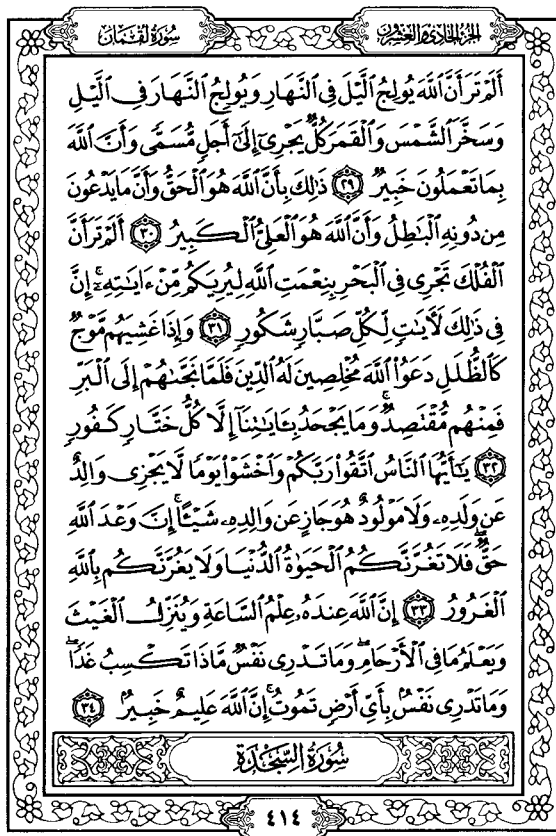 الجزء الحادي والعشرون
سورة لقمان
أَلَمْ تَرَ أَنَّ اللَّهَ يُولِجُ الَّيْلَ فِي النَّهَارِ وَيُولِجُ النَّهَارَ فِي الَّيْلِ
وَسَخَّرَ الشَّمْسَ وَالْقَمَرَ كُلٌّ يَجْرِي إِلَىٰ أَجَلٍ مُّسَمًّى وَأَنَّ اللَّهَ
بِمَا تَعْمَلُونَ خَبِيرٌ ٢٩ ذَٰلِكَ بِأَنَّ اللَّهَ هُوَ الْحَقُّ وَأَنَّ مَا يَدْعُونَ
مِن دُونِهِ الْبَاطِلُ وَأَنَّ اللَّهَ هُوَ الْعَلِيُّ الْكَبِيرُ ٣٠ أَلَمْ تَرَ أَنَّ
الْفُلْكَ تَجْرِي فِي الْبَحْرِ بِنِعْمَتِ اللَّهِ لِيُرِيَكُم مِّنْ ءَايَاتِهِ ۚ إِنَّ
فِي ذَٰلِكَ لَآيَاتٍ لِّكُلِّ صَبَّارٍ شَكُورٍ ٣١ وَإِذَا غَشِيَهُم مَّوْجٌ
كَالظُّلَلِ دَعَوُا اللَّهَ مُخْلِصِينَ لَهُ الدِّينَ فَلَمَّا نَجَّىٰهُمْ إِلَى الْبَرِّ
فَمِنْهُم مُّقْتَصِدٌ ۚ وَمَا يَجْحَدُ بِـَٔايَاتِنَا إِلَّا كُلُّ خَتَّارٍ كَفُورٍ
٣٢ يَٰٓأَيُّهَا النَّاسُ اتَّقُوا رَبَّكُمْ وَاخْشَوْا يَوْمًا لَّا يَجْزِي وَالِدٌ
عَن وَلَدِهِ وَلَا مَوْلُودٌ هُوَ جَازٍ عَن وَالِدِهِ شَيْـًٔا ۚ إِنَّ وَعْدَ اللَّهِ
حَقٌّ ۖ فَلَا تَغُرَّنَّكُمُ الْحَيَوٰةُ الدُّنْيَا وَلَا يَغُرَّنَّكُم بِاللَّهِ
الْغَرُورُ ٣٣ إِنَّ اللَّهَ عِندَهُ عِلْمُ السَّاعَةِ وَيُنَزِّلُ الْغَيْثَ
وَيَعْلَمُ مَا فِي الْأَرْحَامِ ۖ وَمَا تَدْرِي نَفْسٌ مَّاذَا تَكْسِبُ غَدًا ۖ
وَمَا تَدْرِي نَفْسٌ بِأَيِّ أَرْضٍ تَمُوتُ ۚ إِنَّ اللَّهَ عَلِيمٌ خَبِيرٌ ٣٤
سُورَةُ السَّجْدَةِ
٤١٤